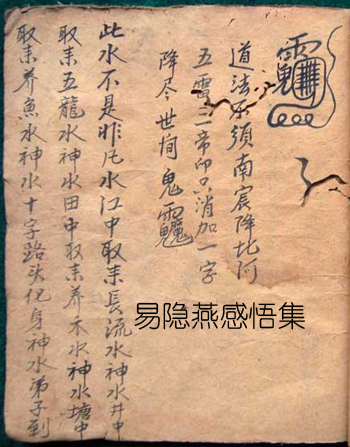 道法不須南宸降北阿
五雷二帝印只消加一字
降尽世间鬼
此水不是凡水江中取耒長流水神水井中
取耒五龍水神水田中取耒养禾水神水塘中
取耒养魚水神水十字路头化身神水弟子到
易隐燕感悟集